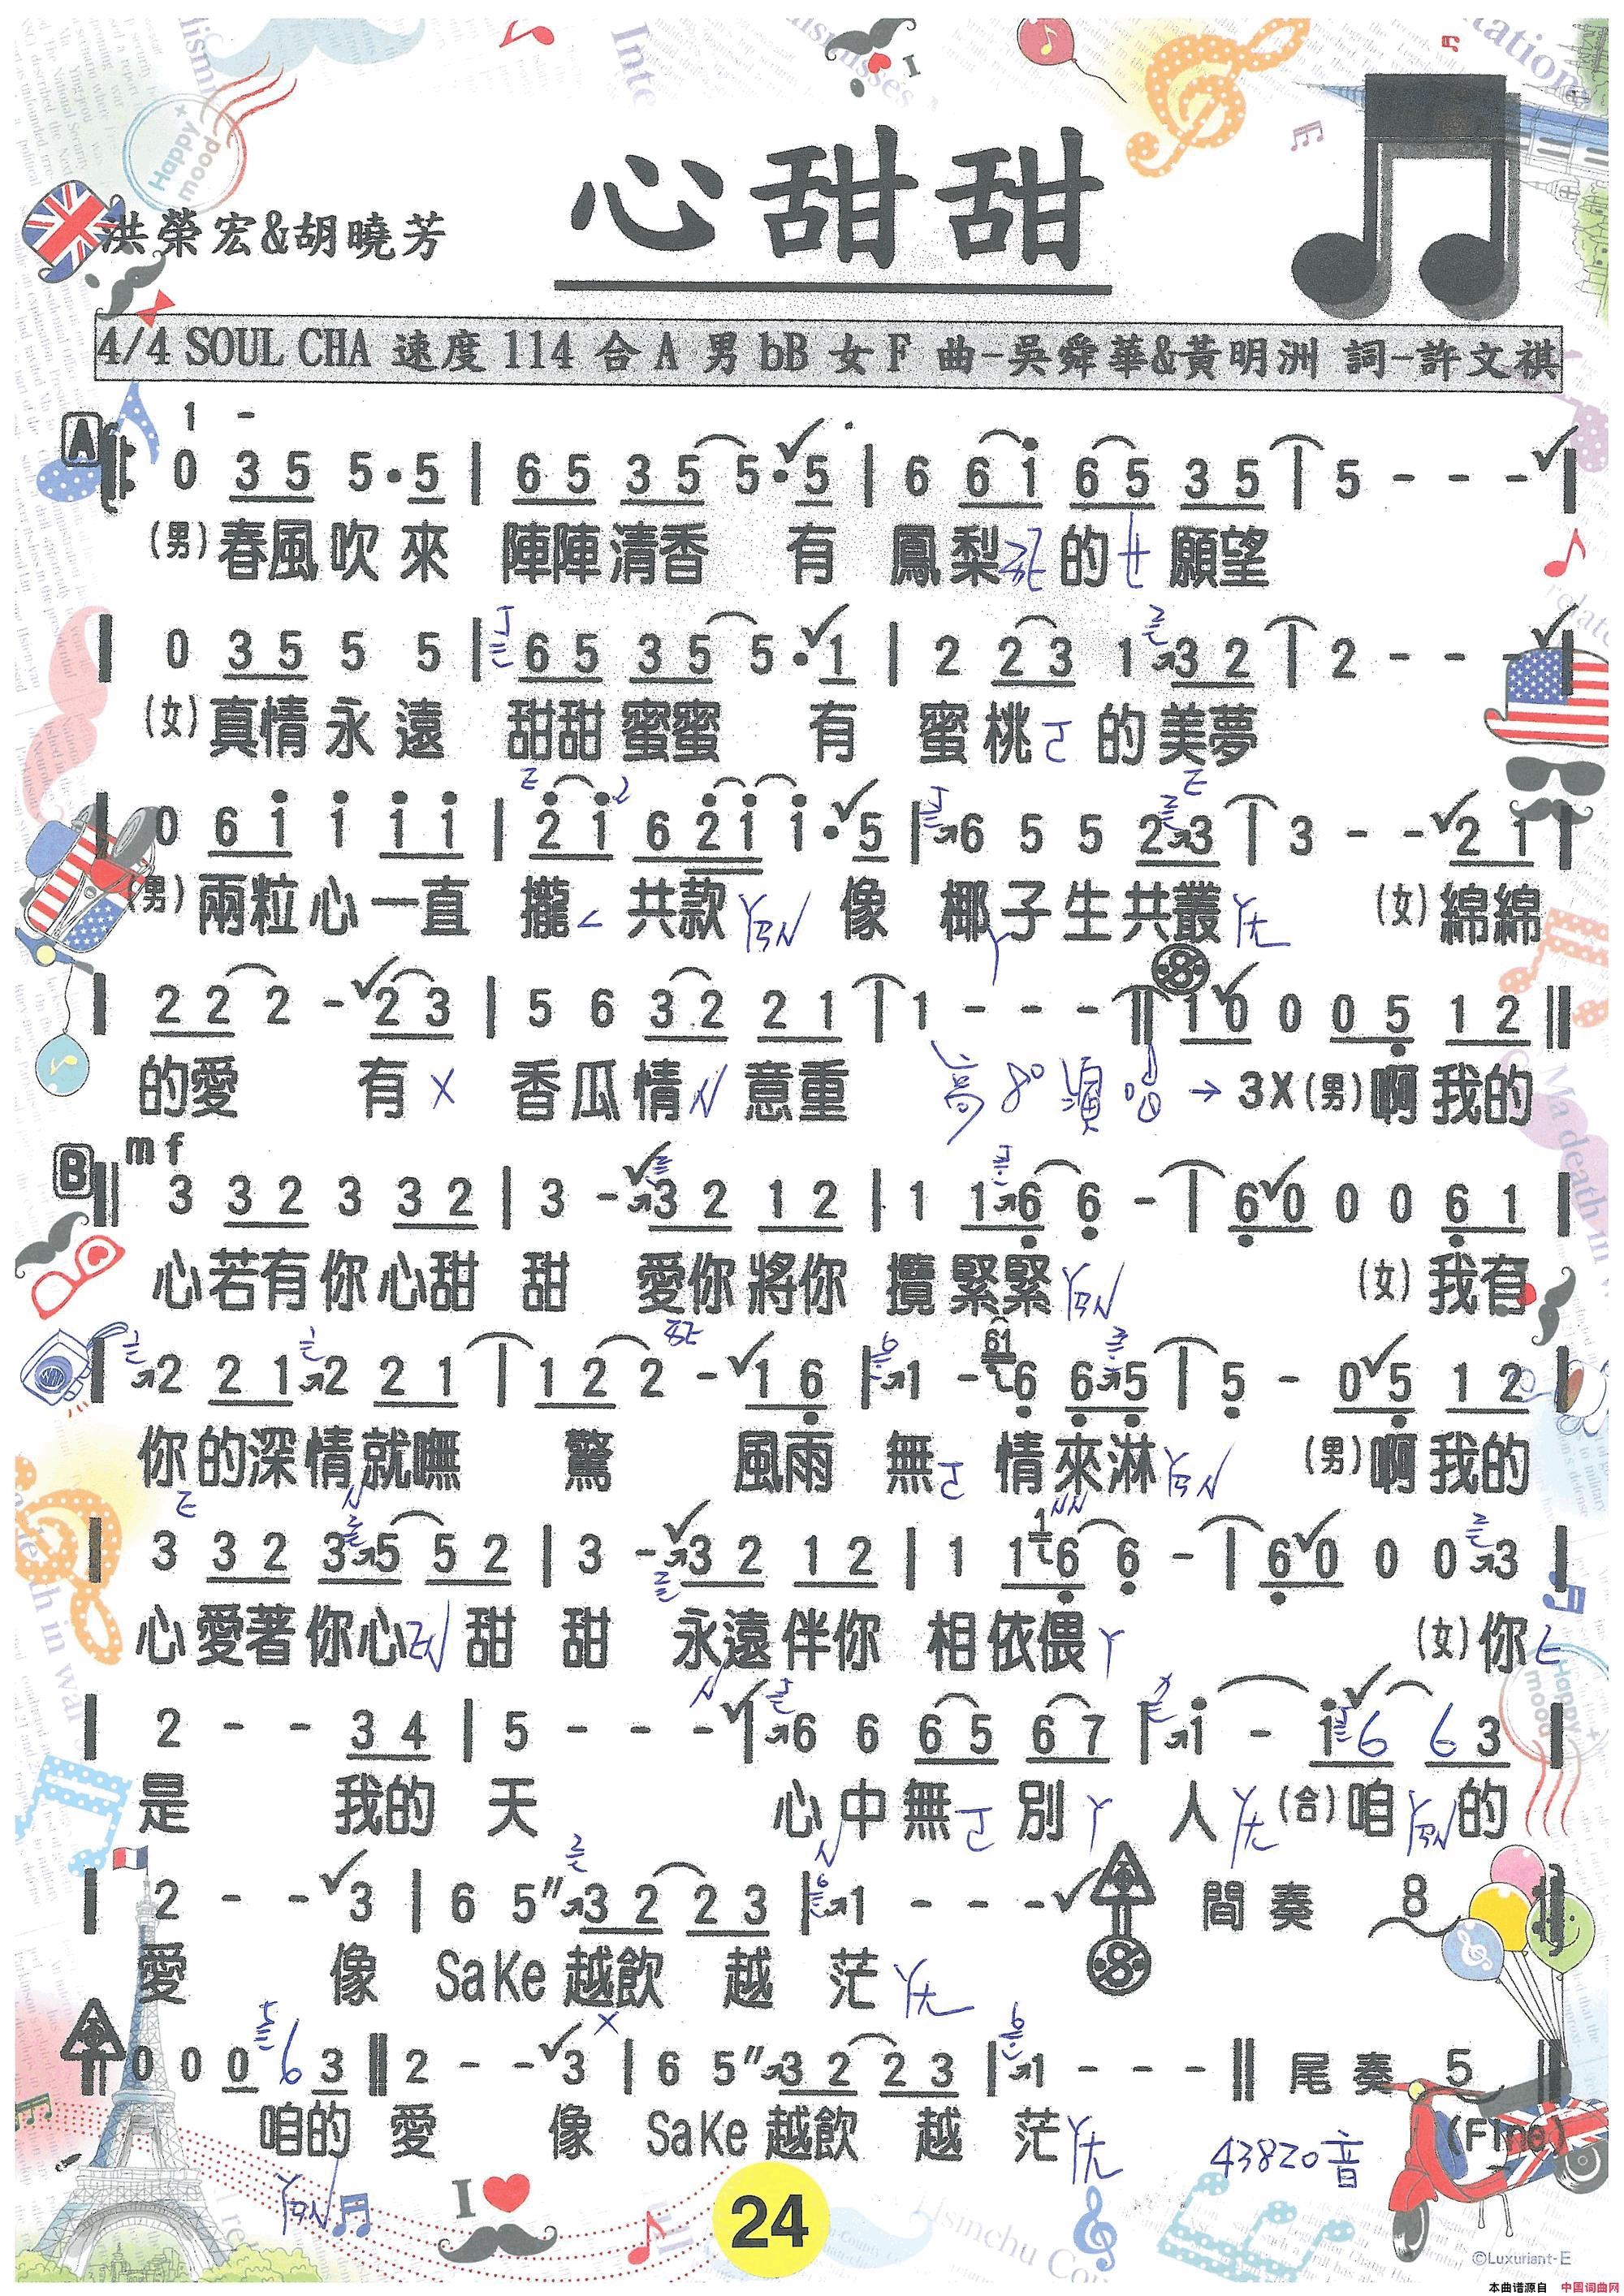 心甜甜
洪榮宏&胡曉芳
4/4 SOUL CHA 速度 114 合 A 男 bB 女 F 曲-吳舜華&黃明洲 詞-許文祺
A 1 -
0 3 5 5·5 | 6 5 3 5 5·5 | 6 6 i 6 5 3 5 | 5 - - - |
(男)春風吹來 陣陣清香 有 鳳梨 的 願望
| 0 3 5 5 5 | 6 5 3 5 5·1 | 2 2 3 1 3 2 | 2 - - - |
(女)真情永遠 甜甜蜜蜜 有 蜜桃 的美夢
| 0 6 i i i i | 2 i 6 2 i i·5 | 6 5 5 2 3 | 3 - - 2 1 |
(男)兩粒心一直 攏 共款 像 椰子生共叢 (女)綿綿
| 2 2 2 - 2 3 | 5 6 3 2 2 1 | 1 - - - || 1 0 0 0 5 1 2 ||
的愛 有 香瓜情 意重 高8°演唱→ 3X(男)啊我的
B mf
|| 3 3 2 3 3 2 | 3 - 3 2 1 2 | 1 1 6 6 - | 6 0 0 0 6 1 |
心若有你心甜 甜 愛你將你 攬緊緊 (女)我有
| 2 2 1 2 2 1 | 1 2 2 - 1 6 | 1 - 6 6 5 | 5 - 0 5 1 2 |
你的深情就嘸 驚 風雨 無 情來淋 (男)啊我的
| 3 3 2 3 5 5 2 | 3 - 3 2 1 2 | 1 1 6 6 - | 6 0 0 0 3 |
心愛著你心 甜 甜 永遠伴你 相依偎 (女)你
| 2 - - 3 4 | 5 - - - | 6 6 6 5 6 7 | i - i 6 6 3 |
是 我的 天 心中無 別 人 (合)咱 的
| 2 - - 3 | 6 5 3 2 2 3 | 1 - - - 間奏 8
愛 像 SaKe越飲 越 茫
0 0 0 6 3 || 2 - - 3 | 6 5 3 2 2 3 | 1 - - - || 尾奏 5 ||
咱的 愛 像 SaKe越飲 越 茫 (Fine)
43820音
24
I
©Luxuriant-E
本曲谱源自 中国词曲网